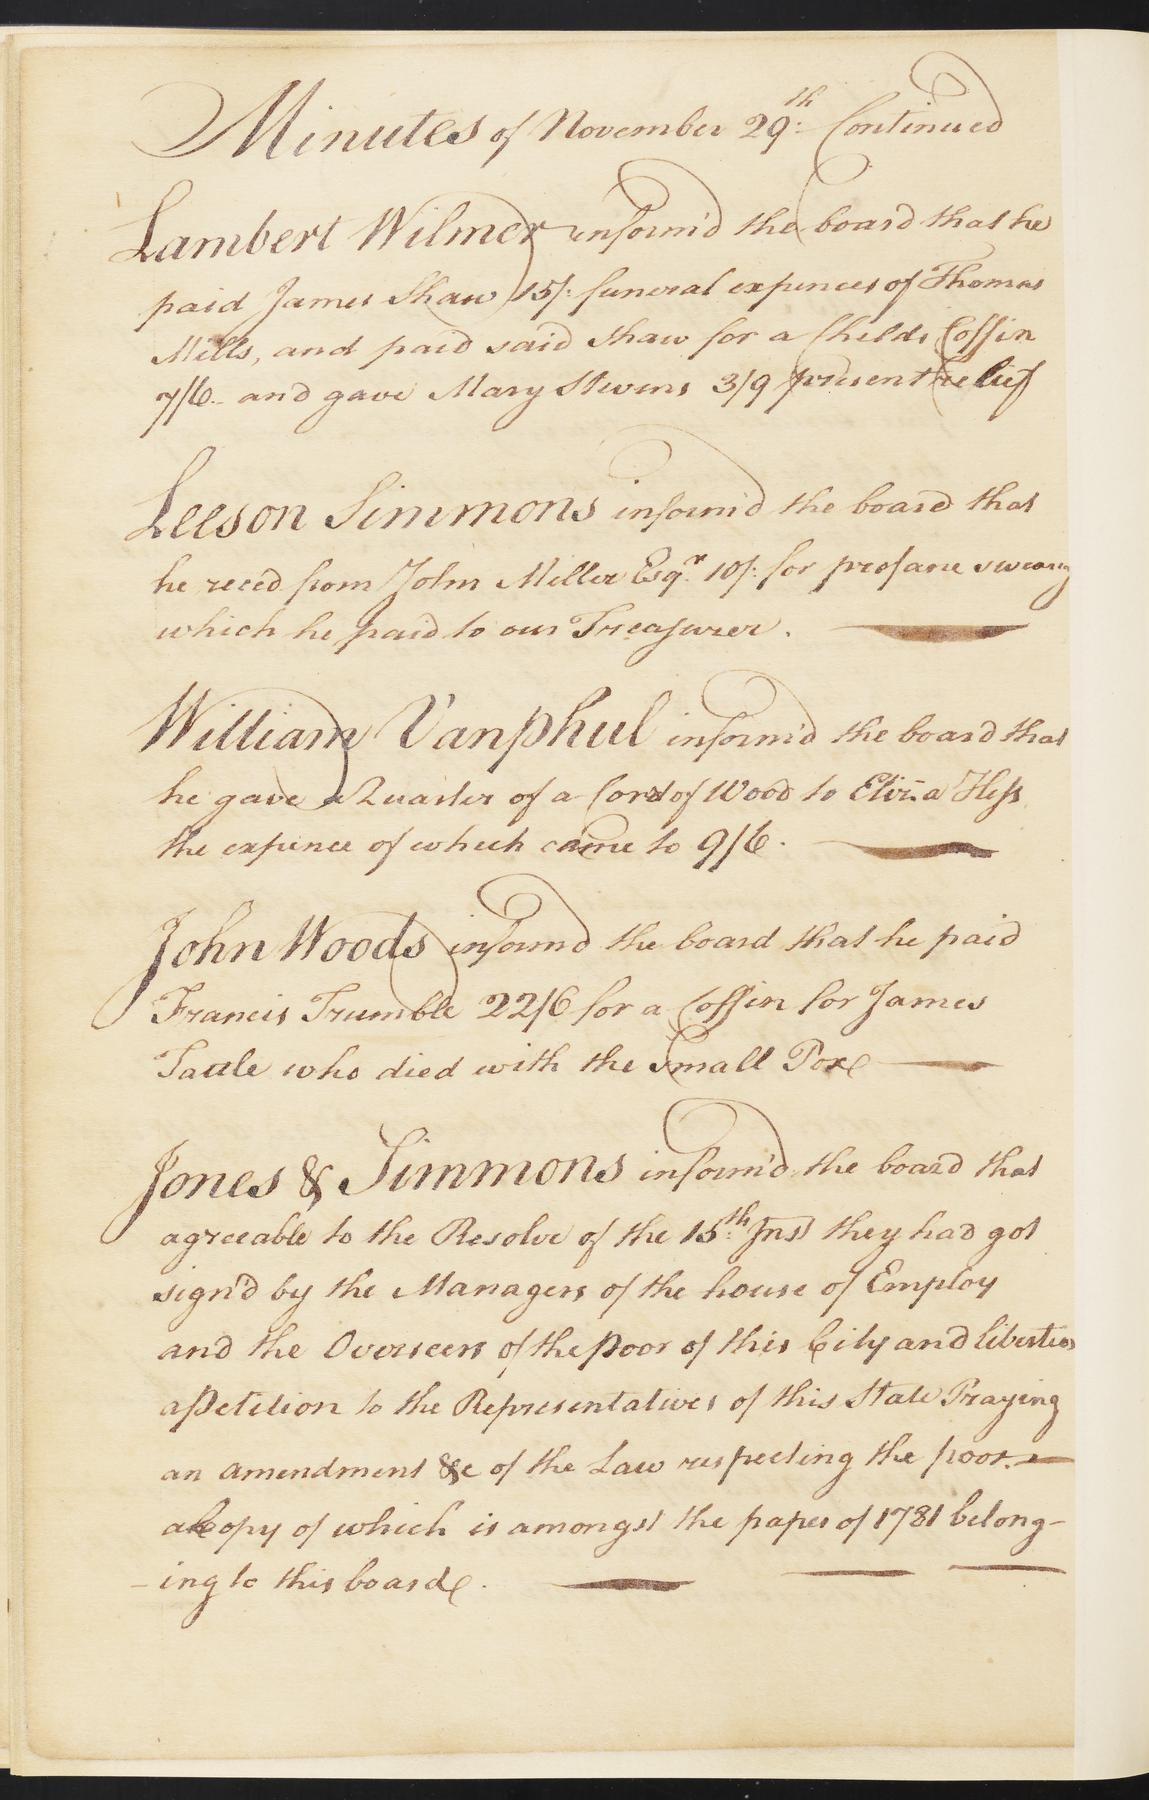 Minutes of November 29th: Continued
Lambert Wilmer inform'd the board that he
paid James Shaw 15/: funeral expences of Thomas
Mills, and paid said Shaw for a Childs Coffin
7/6. and gave Mary Stevens 3/9 present relief
Leeson Simmons inform'd the board that
he rece'd from John Miller Esqr. 10/: for profane swearg
which he paid to our Treasurer.
William Vanphul inform'd the board that
he gave a Quarter of a Cord of Wood to Hess
the expence of which came to 9/6.
John Woods inform'd the board that he paid
Francis Trumble 22/6 for a Coffin for James
Tattle who died with the Small Pox
Jones & Simmons inform'd the board that
agreeable to the Resolve of the 15th: Inst they had got
sign'd by the Managers of the house of Employ
and the Overseers of the poor of this City and liberties
a Petition to the Representatives of this State Praying
an amendment &c of the Law respecting the poor.
a Copy of which is amongst the papes of 1781 belong-
-ing to this board.